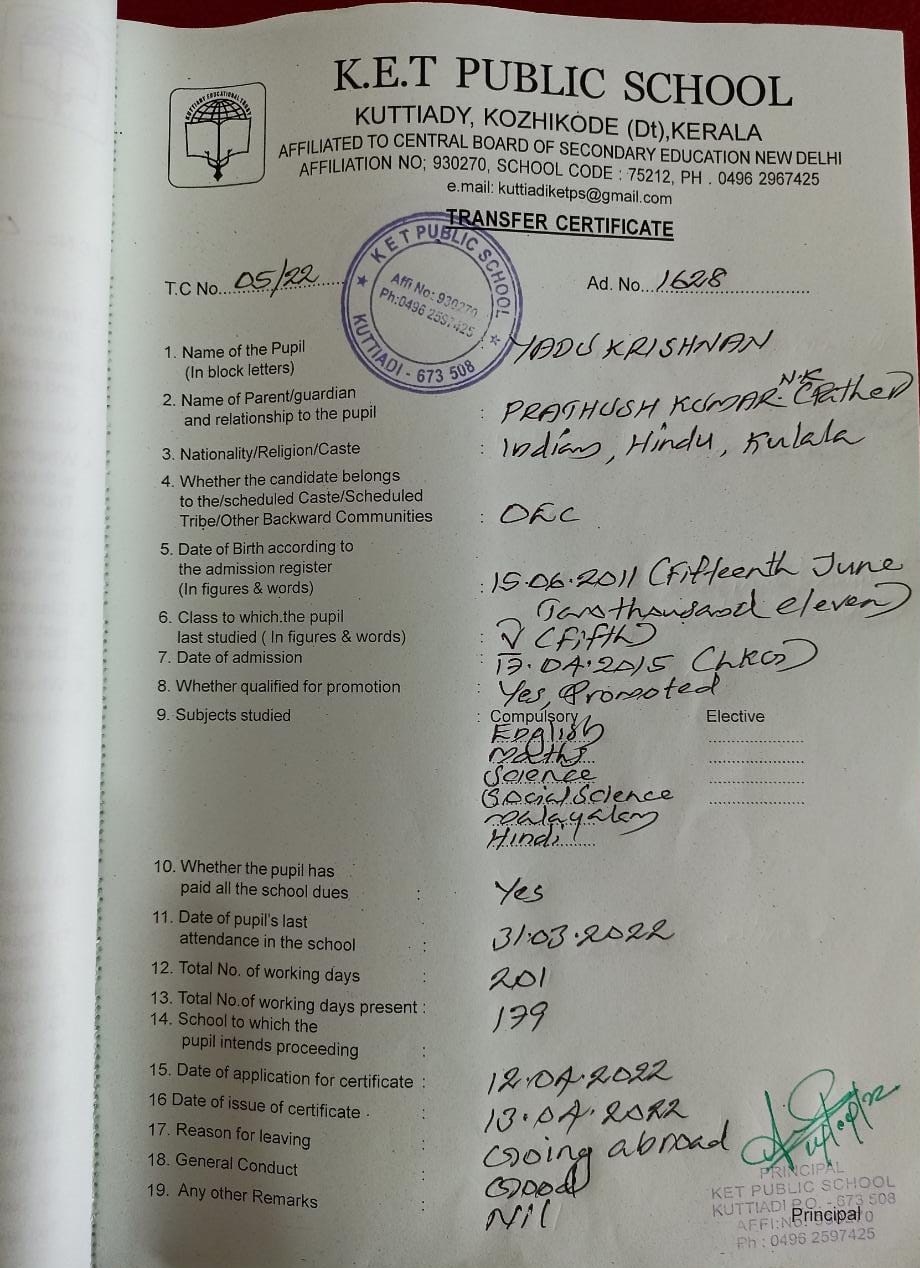 KUTTIADY EDUCATIONAL TRUST
K.E.T PUBLIC SCHOOL
KUTTIADY, KOZHIKODE (Dt),KERALA
AFFILIATED TO CENTRAL BOARD OF SECONDARY EDUCATION NEW DELHI
AFFILIATION NO; 930270, SCHOOL CODE : 75212, PH . 0496 2967425
e.mail: kuttiadiketps@gmail.com
TRANSFER CERTIFICATE
KET PUBLIC SCHOOL
Affi No: 930270
Ph:0496 2597425
KUTTIADI - 673 508
T.C No...05/22 Ad. No...1628
1. Name of the Pupil : YADU KRISHNAN
(In block letters)
2. Name of Parent/guardian N.K
and relationship to the pupil : PRATHUSH KUMAR. (Father)
3. Nationality/Religion/Caste : Indian, Hindu, Kulala
4. Whether the candidate belongs
to the/scheduled Caste/Scheduled
Tribe/Other Backward Communities : OEC
5. Date of Birth according to
the admission register
(In figures & words) : 15.06.2011 (Fifteenth June
Two thousand eleven)
6. Class to which.the pupil
last studied ( In figures & words) : V (Fifth)
7. Date of admission : 17.04.2015 (LKG)
8. Whether qualified for promotion : Yes, Promoted
9. Subjects studied : Compulsory Elective
English
Maths
Science
Social Science
Malayalam
Hindi
10. Whether the pupil has
paid all the school dues : Yes
11. Date of pupil's last
attendance in the school : 31.03.2022
12. Total No. of working days : 201
13. Total No.of working days present : 179
14. School to which the
pupil intends proceeding :
15. Date of application for certificate : 12.04.2022
16 Date of issue of certificate . : 13.04.2022
17. Reason for leaving : Going abroad
18. General Conduct : Good
19. Any other Remarks : Nil
PRINCIPAL
KET PUBLIC SCHOOL
KUTTIADI P.O. - 673 508
AFFI:No. 930270
Principal
Ph : 0496 2597425